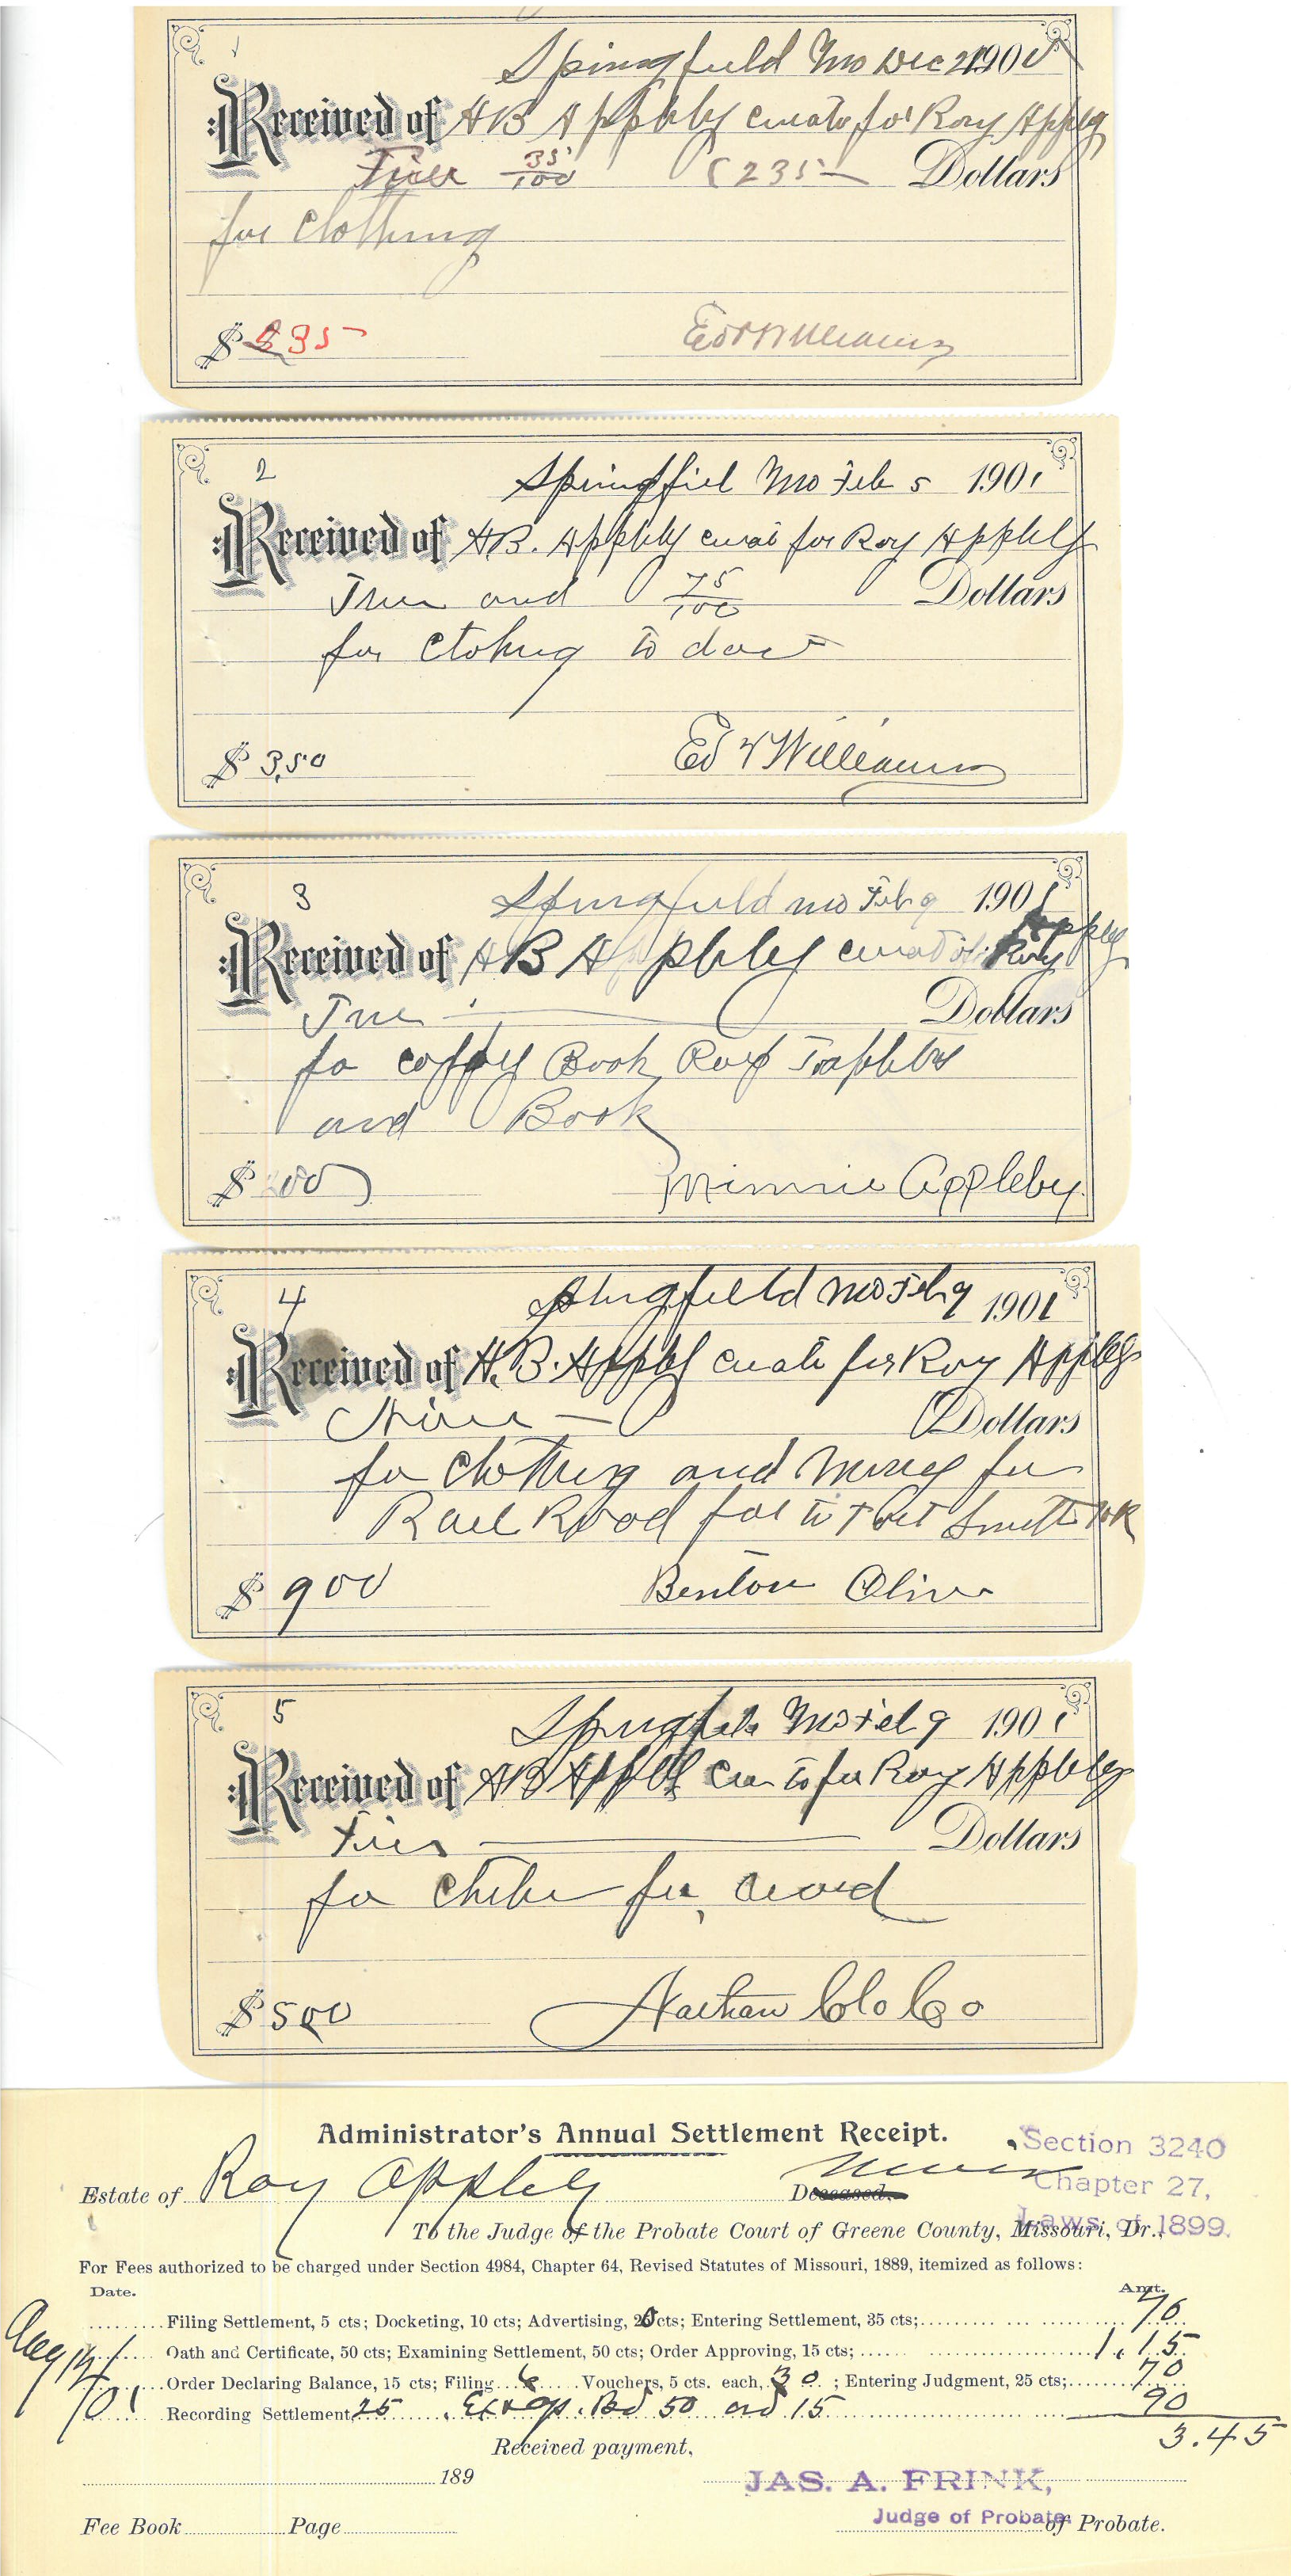 1
Springfield Mo Dec 21 1900
Received of HB Appleby curato for Roy Appleby
35/100 235 Dollars
for Clothing
$ 35
Ed V Williams
2
Springfiel Mo Feb 5 1901
Received of H.B. Appleby curat for Roy Appleby
Three and 75/100 Dollars
for Clothing to dat
$ 3,50
Ed V Williams
3
Springfield mo Feb 9 1901
Received of HB Appleby curator Roy Appleby
Dollars
fo coppy Book
and Book
$ 00
Minnie Appleby
4
Springfield Mo Feb 9 1901
Received of H.B. Appleby curato for Roy Appleby
Nine — Dollars
for Clothing and Money for
Rail Road far to Fort Smith Ark
$ 900
Benton Oliver
5
Springfield Mo Feb 9 1901
Received of HB Appleby for Roy Appleby
Five Dollars
for
$ 500
Nathan Clo Co
Administrator's Annual Settlement Receipt.
Section 3240
Chapter 27,
Laws of 1899.
Estate of Roy Appleby Minor Deceased.
To the Judge of the Probate Court of Greene County, Missouri, Dr.,
For Fees authorized to be charged under Section 4984, Chapter 64, Revised Statutes of Missouri, 1889, itemized as follows:
Date. Amt.
Filing Settlement, 5 cts; Docketing, 10 cts; Advertising, 20cts; Entering Settlement, 35 cts; 70
Aug 14/ Oath and Certificate, 50 cts; Examining Settlement, 50 cts; Order Approving, 15 cts; 1.15
/01 Order Declaring Balance, 15 cts; Filing 6 Vouchers, 5 cts. each, 30 ; Entering Judgment, 25 cts; 70
Recording Settlement, 25 . Bd 50 ord 15 90
3.45
Received payment,
189
JAS. A. FRINK,
Judge of Probate
Fee Book Page of Probate.